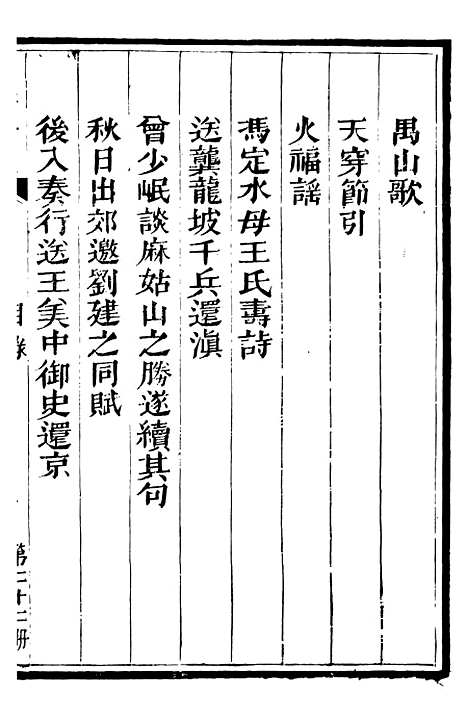 禺山歌
天穿節引
火福謡
馮定水母王氏壽詩
送龔龍坡千兵還滇
曾少岷談麻姑山之勝遂續其句
秋日出郊邀劉建之同賦
後入奏行送王美中御史還京
目錄
第二十二册